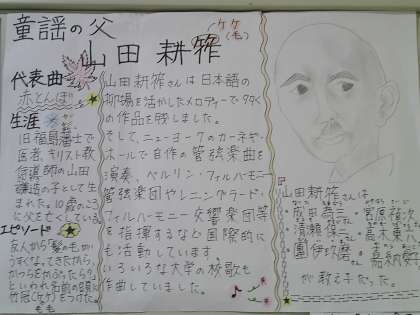 童謡の父
山田 耕筰
ケケ
(毛)
代表曲
赤とんぼ
生涯
旧福島藩士で
医者、キリスト教
伝導師の山田
謙造の子として生
まれた。10歳のころ
に父を亡くしている
エピソード
友人から「髪の毛が
うすくなってきたから、
かつらをかぶったら?」
といわれ名前の頭に
竹冠(ケケ)をつけた。
もも
山田耕筰さんは日本語の
抑揚を活かしたメロディーで多く
の作品を残しました。
そして、ニューヨークのカーネギー
ホールで自作の管弦楽曲を
演奏、ベルリン・フィルハーモニー
管弦楽団やレニングラード・
フィルハーモニー交響楽団等
を指揮するなど国際的に
も活動しています
いろいろな大学の校歌も
作曲していました。
山田耕筰さんは
成田為三さん
清瀬保二さん
團伊玖磨さん
が教え子だった。